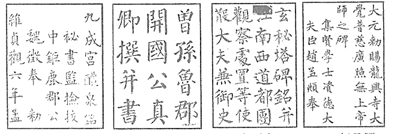 九成宮醴泉銘
秘書監檢校
中鉅鹿郡公
魏徵奉 勅
維貞觀六年孟
曾孫魯郡
開國公真
卿撰并書
玄秘塔碑銘并
江南西道都團
觀察處置等使
散大夫兼御史
大元勅賜龍興寺大
覺普慈廣照無上帝
師之碑
集賢學士資德大
夫臣趙孟頫奉